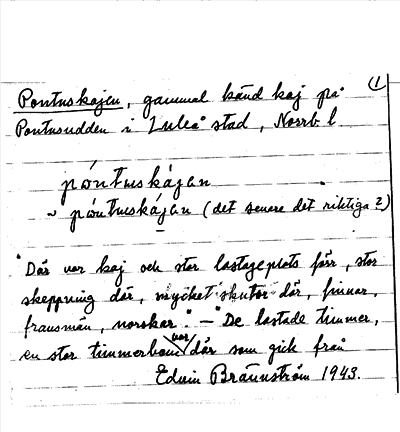 (1
Pontuskajen, gammal känd kaj på
Pontusudden i Luleå stad, Norrb. l
pòntuskájan
~ póntuskájan (det senare det riktiga?)
"Där var kaj och stor lastageplats förr, stor
skeppning där, mycket skutor där, finnar,
fransmän, norskar." — "De lastade timmer,
en stor timmerbom var där som gick från
Edvin Brännström 1943.